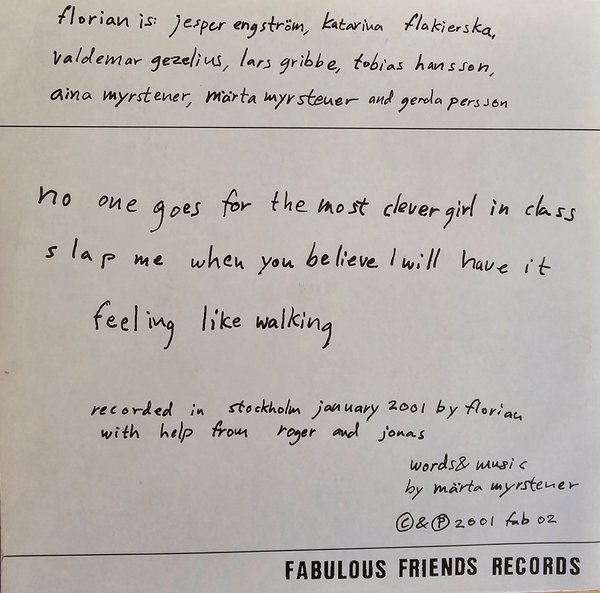 florian is: jesper engström, katarina flakierska,
valdemar gezelius, lars gribbe, tobias hansson,
aina myrstener, märta myrstener and gerda persson
no one goes for the most clever girl in class
slap me when you believe I will have it
feeling like walking
recorded in stockholm january 2001 by florian
with help from roger and jonas
words & music
by märta myrstener
©&℗ 2001 fab 02
FABULOUS FRIENDS RECORDS